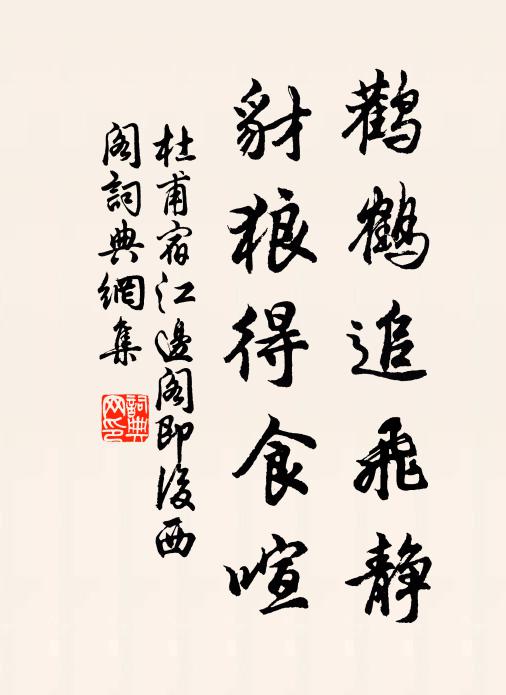 鸛鶴追飛静
豺狼得食喧
杜甫宿江邊閣即後西
閣詞典網集
詞典网印